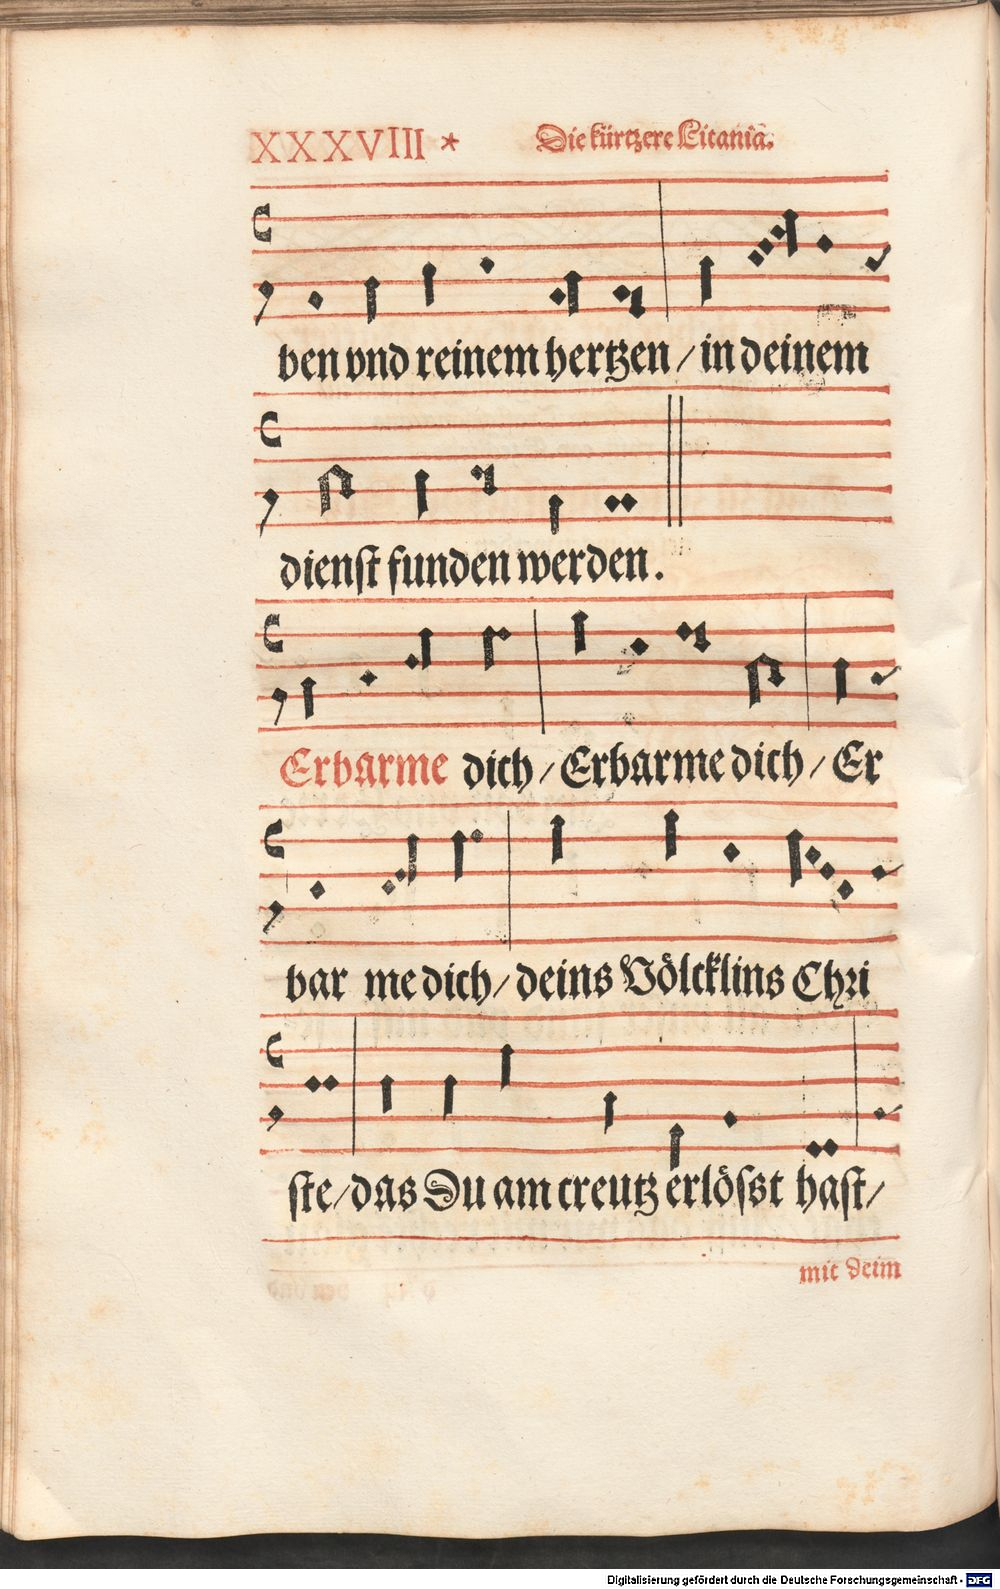 XXXVIII * Die kürtzere Litania.
ben vnd reinem hertzen / in deinem
dienſt funden werden.
Erbarme dich / Erbarme dich / Er
bar me dich / deins Völcklins Chri
ſte / das Du am creutz erlöſst haſt /
mit deim
Digitalisierung gefördert durch die Deutsche Forschungsgemeinschaft - DFG